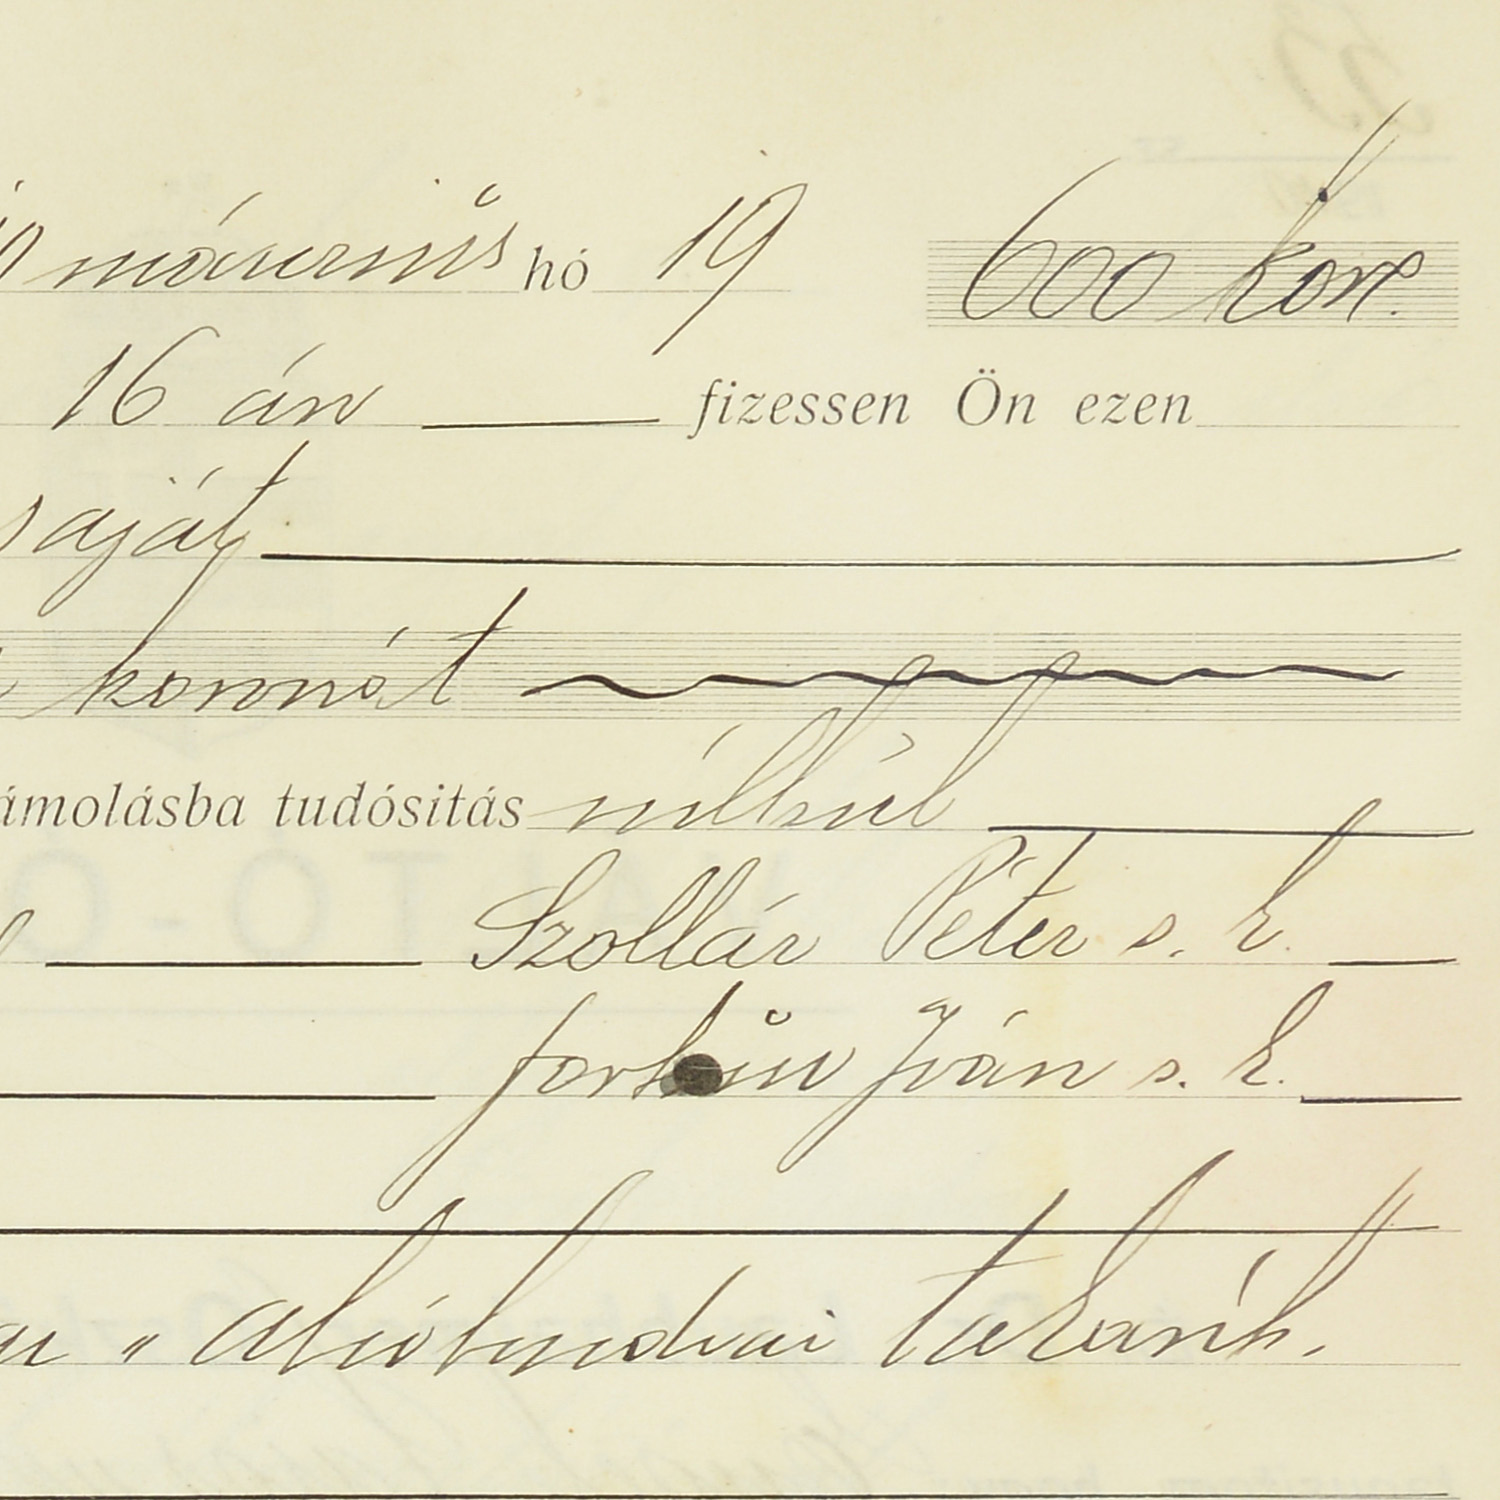 március hó 19 600 kor.
16 án fizessen Ön ezen
saját
koronát
ámolásba tudósitás nélkül
Szollár Péter s. k.
Iván s. k.
" Alsólendvai takarék.